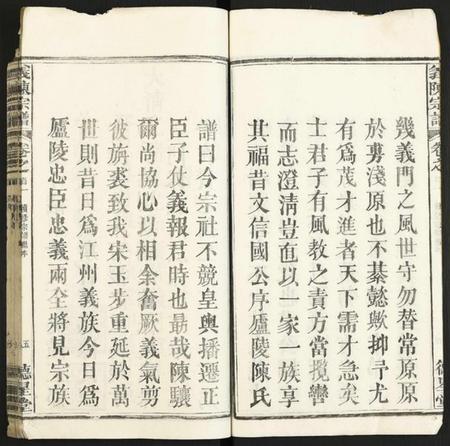 義陳宗譜
德星堂
幾義門之風世守勿替常原原
於旉淺原也不綦懿歟抑予尤
有爲茂才進者天下需才急矣
士君子有風教之責方當攬轡
而志澄清豈直以一家一族享
其福昔文信國公序廬陵陳氏
譜曰今宗社不競皇輿播遷正
臣子仗義報君時也勗哉陳驤
爾尚協心以相余奮厥義氣剪
彼旃裘致我宋玉步重延於萬
世則昔日爲江州義族今日爲
廬陵忠臣忠義兩全將見宗族
義陳宗譜
五
德星堂